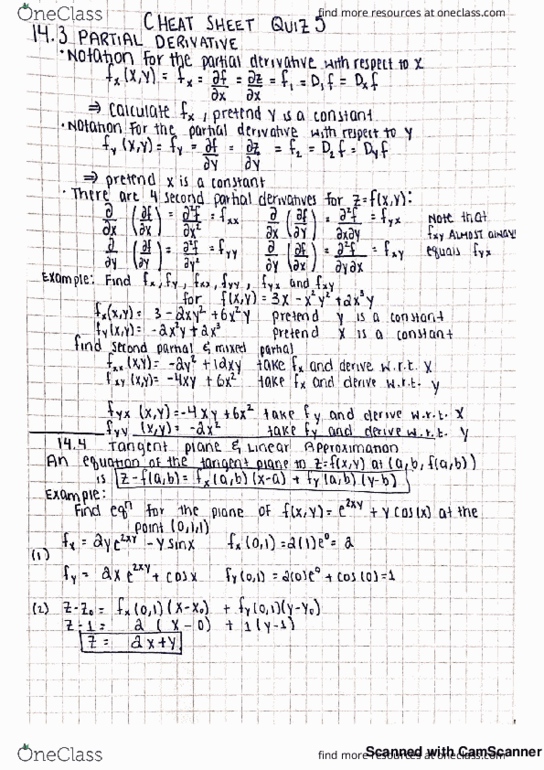 OneClass
find more resources at oneclass.com
CHEAT SHEET QUIZ 5
14.3 PARTIAL DERIVATIVE
• Notation for the partial derivative with respect to x
fx(x,y) = fx = ∂f/∂x = ∂z/∂x = f1 = D1f = Dxf
⇒ calculate fx, pretend y is a constant
• Notation for the partial derivative with respect to y
fy(x,y) = fy = ∂f/∂y = ∂z/∂y = f2 = D2f = Dyf
⇒ pretend x is a constant
• There are 4 second partial derivatives for z=f(x,y):
∂/∂x (∂f/∂x) = ∂²f/∂x² = fxx ∂/∂x (∂f/∂y) = ∂²f/∂x∂y = fyx Note that
fxy ALMOST always
∂/∂y (∂f/∂y) = ∂²f/∂y² = fyy ∂/∂y (∂f/∂x) = ∂²f/∂y∂x = fxy equals fyx
Example: Find fx, fy, fxx, fyy, fyx and fxy
for f(x,y) = 3x - x²y² + 2x³y
fx(x,y) = 3 - 2xy² + 6x²y pretend y is a constant
fy(x,y) = -2x²y + 2x³ pretend x is a constant
find second partial & mixed partial
fxx(x,y) = -2y² + 12xy take fx and derive w.r.t. x
fxy(x,y) = -4xy + 6x² take fx and derive w.r.t. y
fyx(x,y) = -4xy + 6x² take fy and derive w.r.t. x
fyy(x,y) = -2x² take fy and derive w.r.t. y
14.4 Tangent plane & Linear Approximation
An equation of the tangent plane to z=f(x,y) at (a,b, f(a,b))
is z - f(a,b) = fx(a,b)(x-a) + fy(a,b)(y-b)
Example:
Find eqn for the plane of f(x,y) = e^2xy + y cos(x) at the
point (0,1,1)
(1) fx = 2ye^2xy - y sinx fx(0,1) = 2(1)e⁰ = 2
fy = 2xe^2xy + cosx fy(0,1) = 2(0)e⁰ + cos(0) = 1
(2) z-z0 = fx(0,1)(x-x0) + fy(0,1)(y-y0)
z-1 = 2(x-0) + 1(y-1)
z = 2x+y
OneClass
find more resources at oneclass.com
Scanned with CamScanner